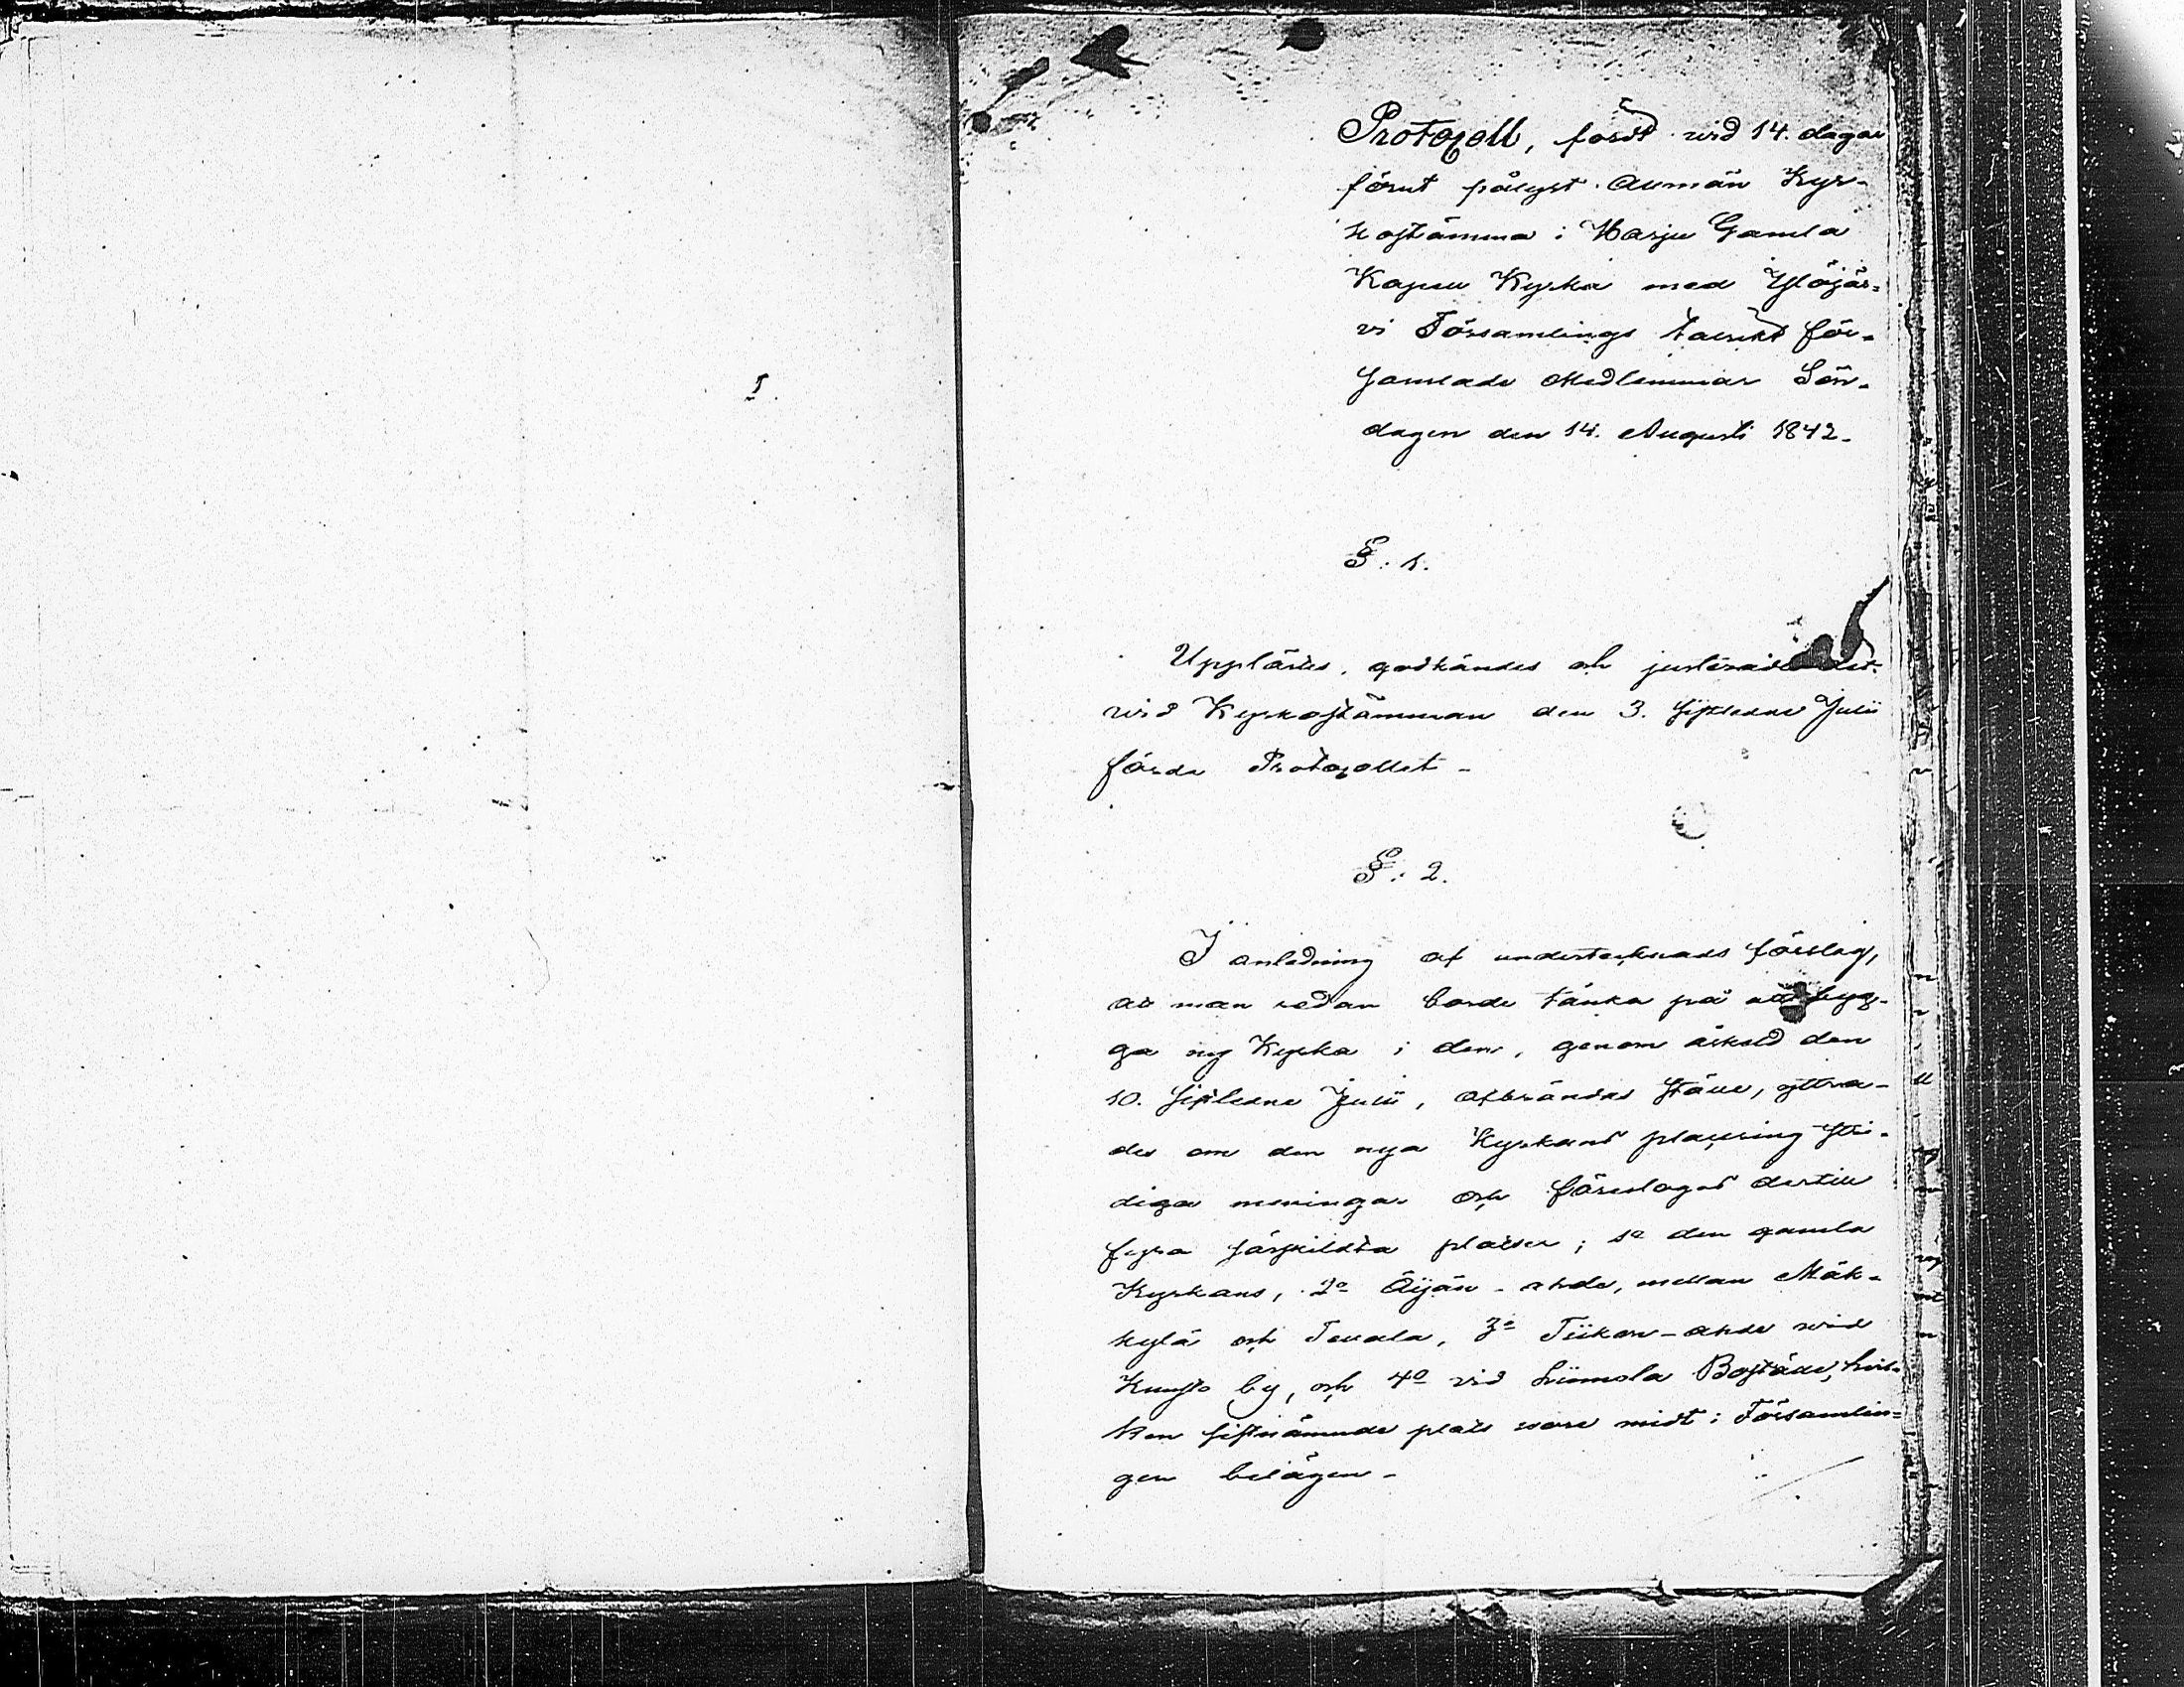 I.
Protocoll, fördt wid 14. dagar
förut pålyst. Allmän Kyr-
kostämma i Harju Gamla
Kapell Kyrka med Ylöjär-
vi Församlings talrikt för-
samlade Medlemmar Sön-
dagen den 14. Augusti 1842.
§. 1.
Upplästes, godkändes och justerades det
wid Kyrkostämman den 3. sistledne Julii
förda Protocollet -
§. 2.
I anledning af undertecknads förslag,
att man redan borde tänka på att byg-
ga ny Kyrka i den, genom åskeld den
10. sistledne Julii, afbrändas ställe, yttra-
des om den nya Kyrkans placering stri-
diga meningar och föreslogos dertill
fyra särskildta platser; 1o den gamla
Kyrkans, 2o Äijän-ahde, mellan Mäk-
kylä och Teivala, 3o Tiikon-ahde wid
Kuusto by, och 4o vid Liimola Boställe, hvil-
ken sistnämnde plats wore midt i Församlin-
gen belägen -